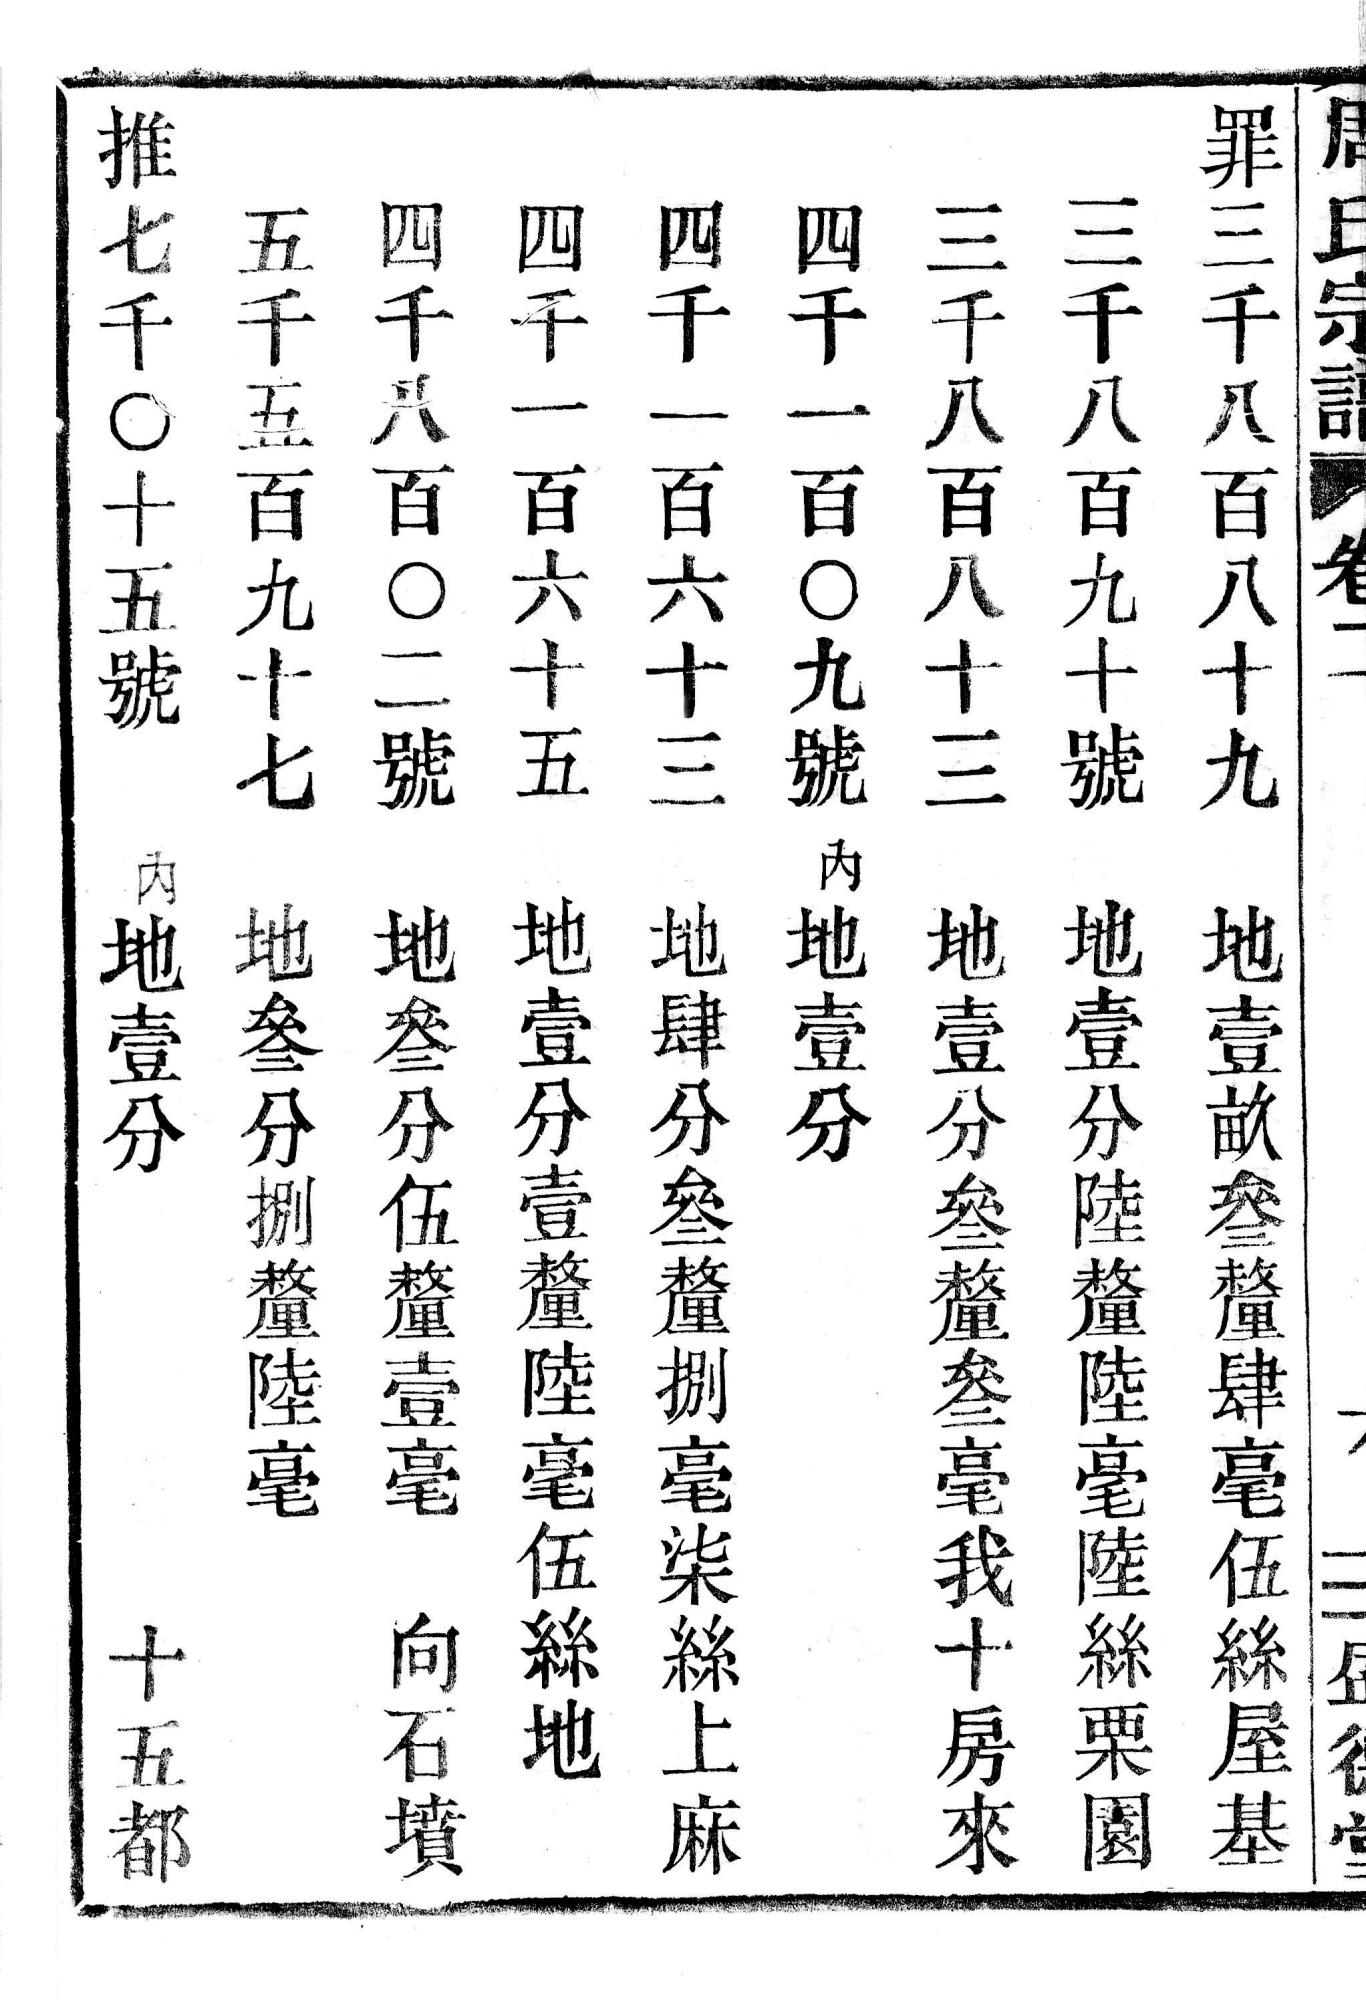 周氏宗譜 卷二 六 三 盛德堂
罪三千八百八十九 地壹畝叄釐肆毫伍絲屋基
三千八百九十號 地壹分陸釐陸毫陸絲栗園
三千八百八十三 地壹分叄釐叄毫我十房來
四千一百〇九號 內地壹分
四千一百六十三 地肆分叄釐捌毫柒絲上麻
四千一百六十五 地壹分壹釐陸毫伍絲地
四千八百〇二號 地叄分伍釐壹毫 向石墳
五千五百九十七 地叄分捌釐陸毫
推七千〇十五號 內地壹分 十五都